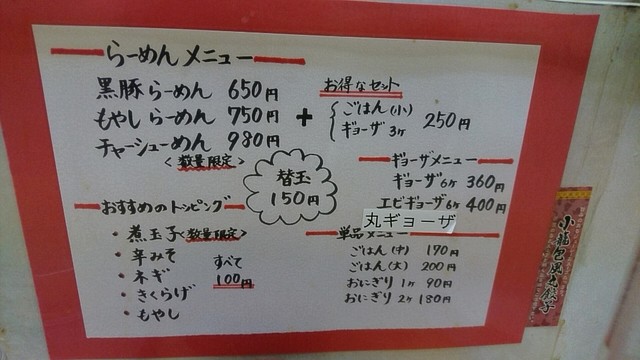 らーめんメニュー
黒豚らーめん 650円
もやしらーめん 750円
チャーシューめん 980円
<数量限定>
+
お得なセット
ごはん(小)
ギョーザ 3ヶ
250円
替玉
150円
ギョーザメニュー
ギョーザ 6ヶ 360円
エビギョーザ 6ヶ 400円
丸ギョーザ
おすすめのトッピング
・煮玉子<数量限定>
・辛みそ
・ネギ
・きくらげ
・もやし
すべて
100円
単品メニュー
ごはん(中) 170円
ごはん(大) 200円
おにぎり 1ヶ 90円
おにぎり 2ヶ 180円
小籠包風丸餃子